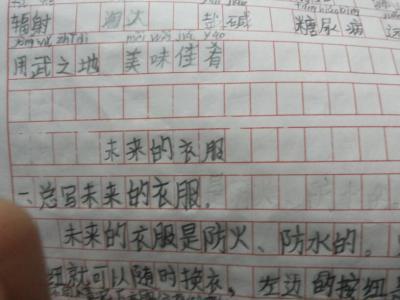 辐射 淘汰 盐碱 糖尿病
yòng wǔ zhī dì měi wèi jiā yáo
用武之地 美味佳肴
未来的衣服
一、总写未来的衣服。
未来的衣服是防火、防水的。
就可以随时换衣,左边的按钮